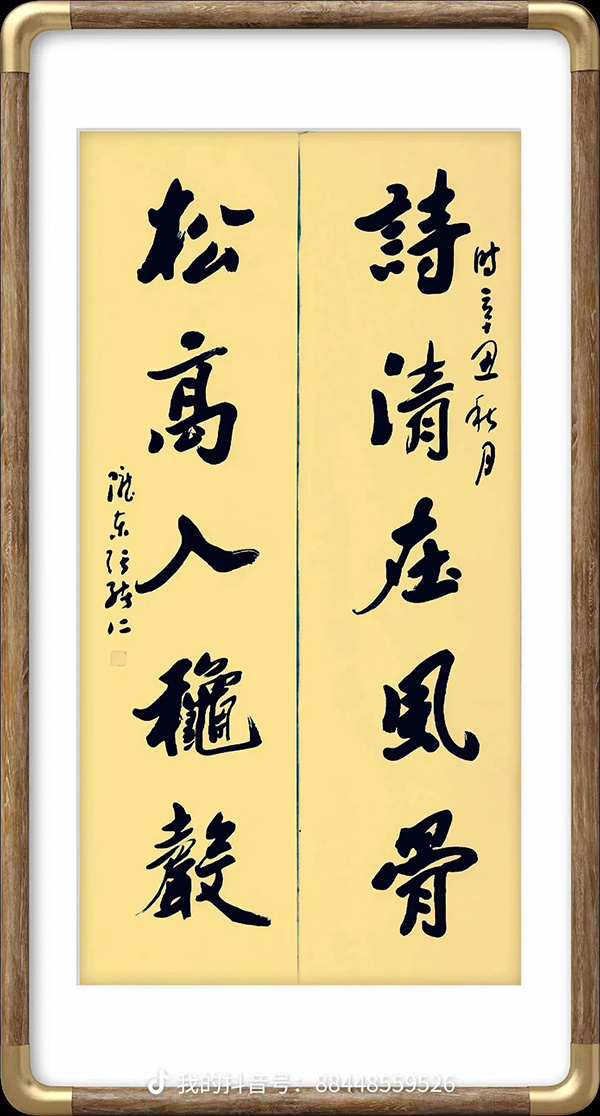 時辛丑秋月
詩清在風骨
松高入龝聲
隴东张仁
我的抖音号：88448559526